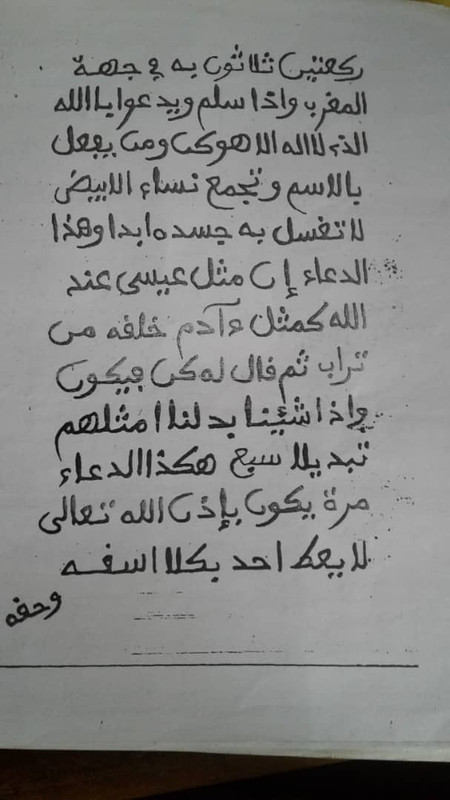 ركعتين ثلاثون به في جهة
المغرب واذا سلم ويدعوا ياالله
الذي لااله الا هو كن ومن يفعل
بالاسم وتجمع نساء الابيض
لا تغسل به جسده ابدا وهذا
الدعاء إن مثل عيسى عند
الله كمثل ءادم خلفه من
تراب ثم فال له كن فيكون
وإذا شئينا بدلنا امثلهم
تبديلا سبع هكذا الدعاء
مرة يكون بإذن الله تعالى
لا يعط احد بكلا اسفه
وحفه